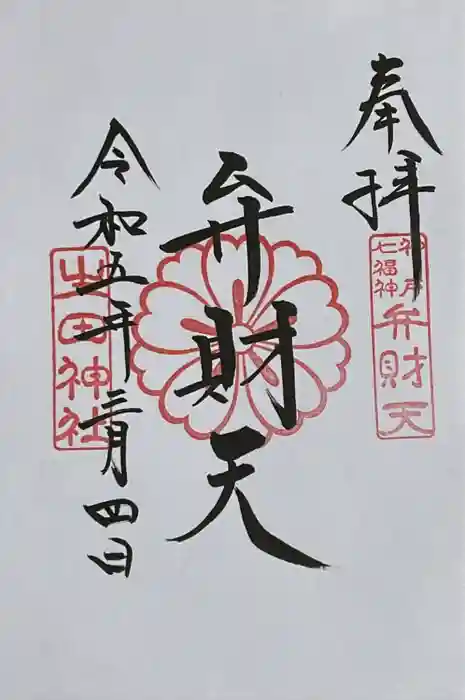 奉拝
神戸
七福神
弁財天
弁財天
令和五年三月四日
生田神社